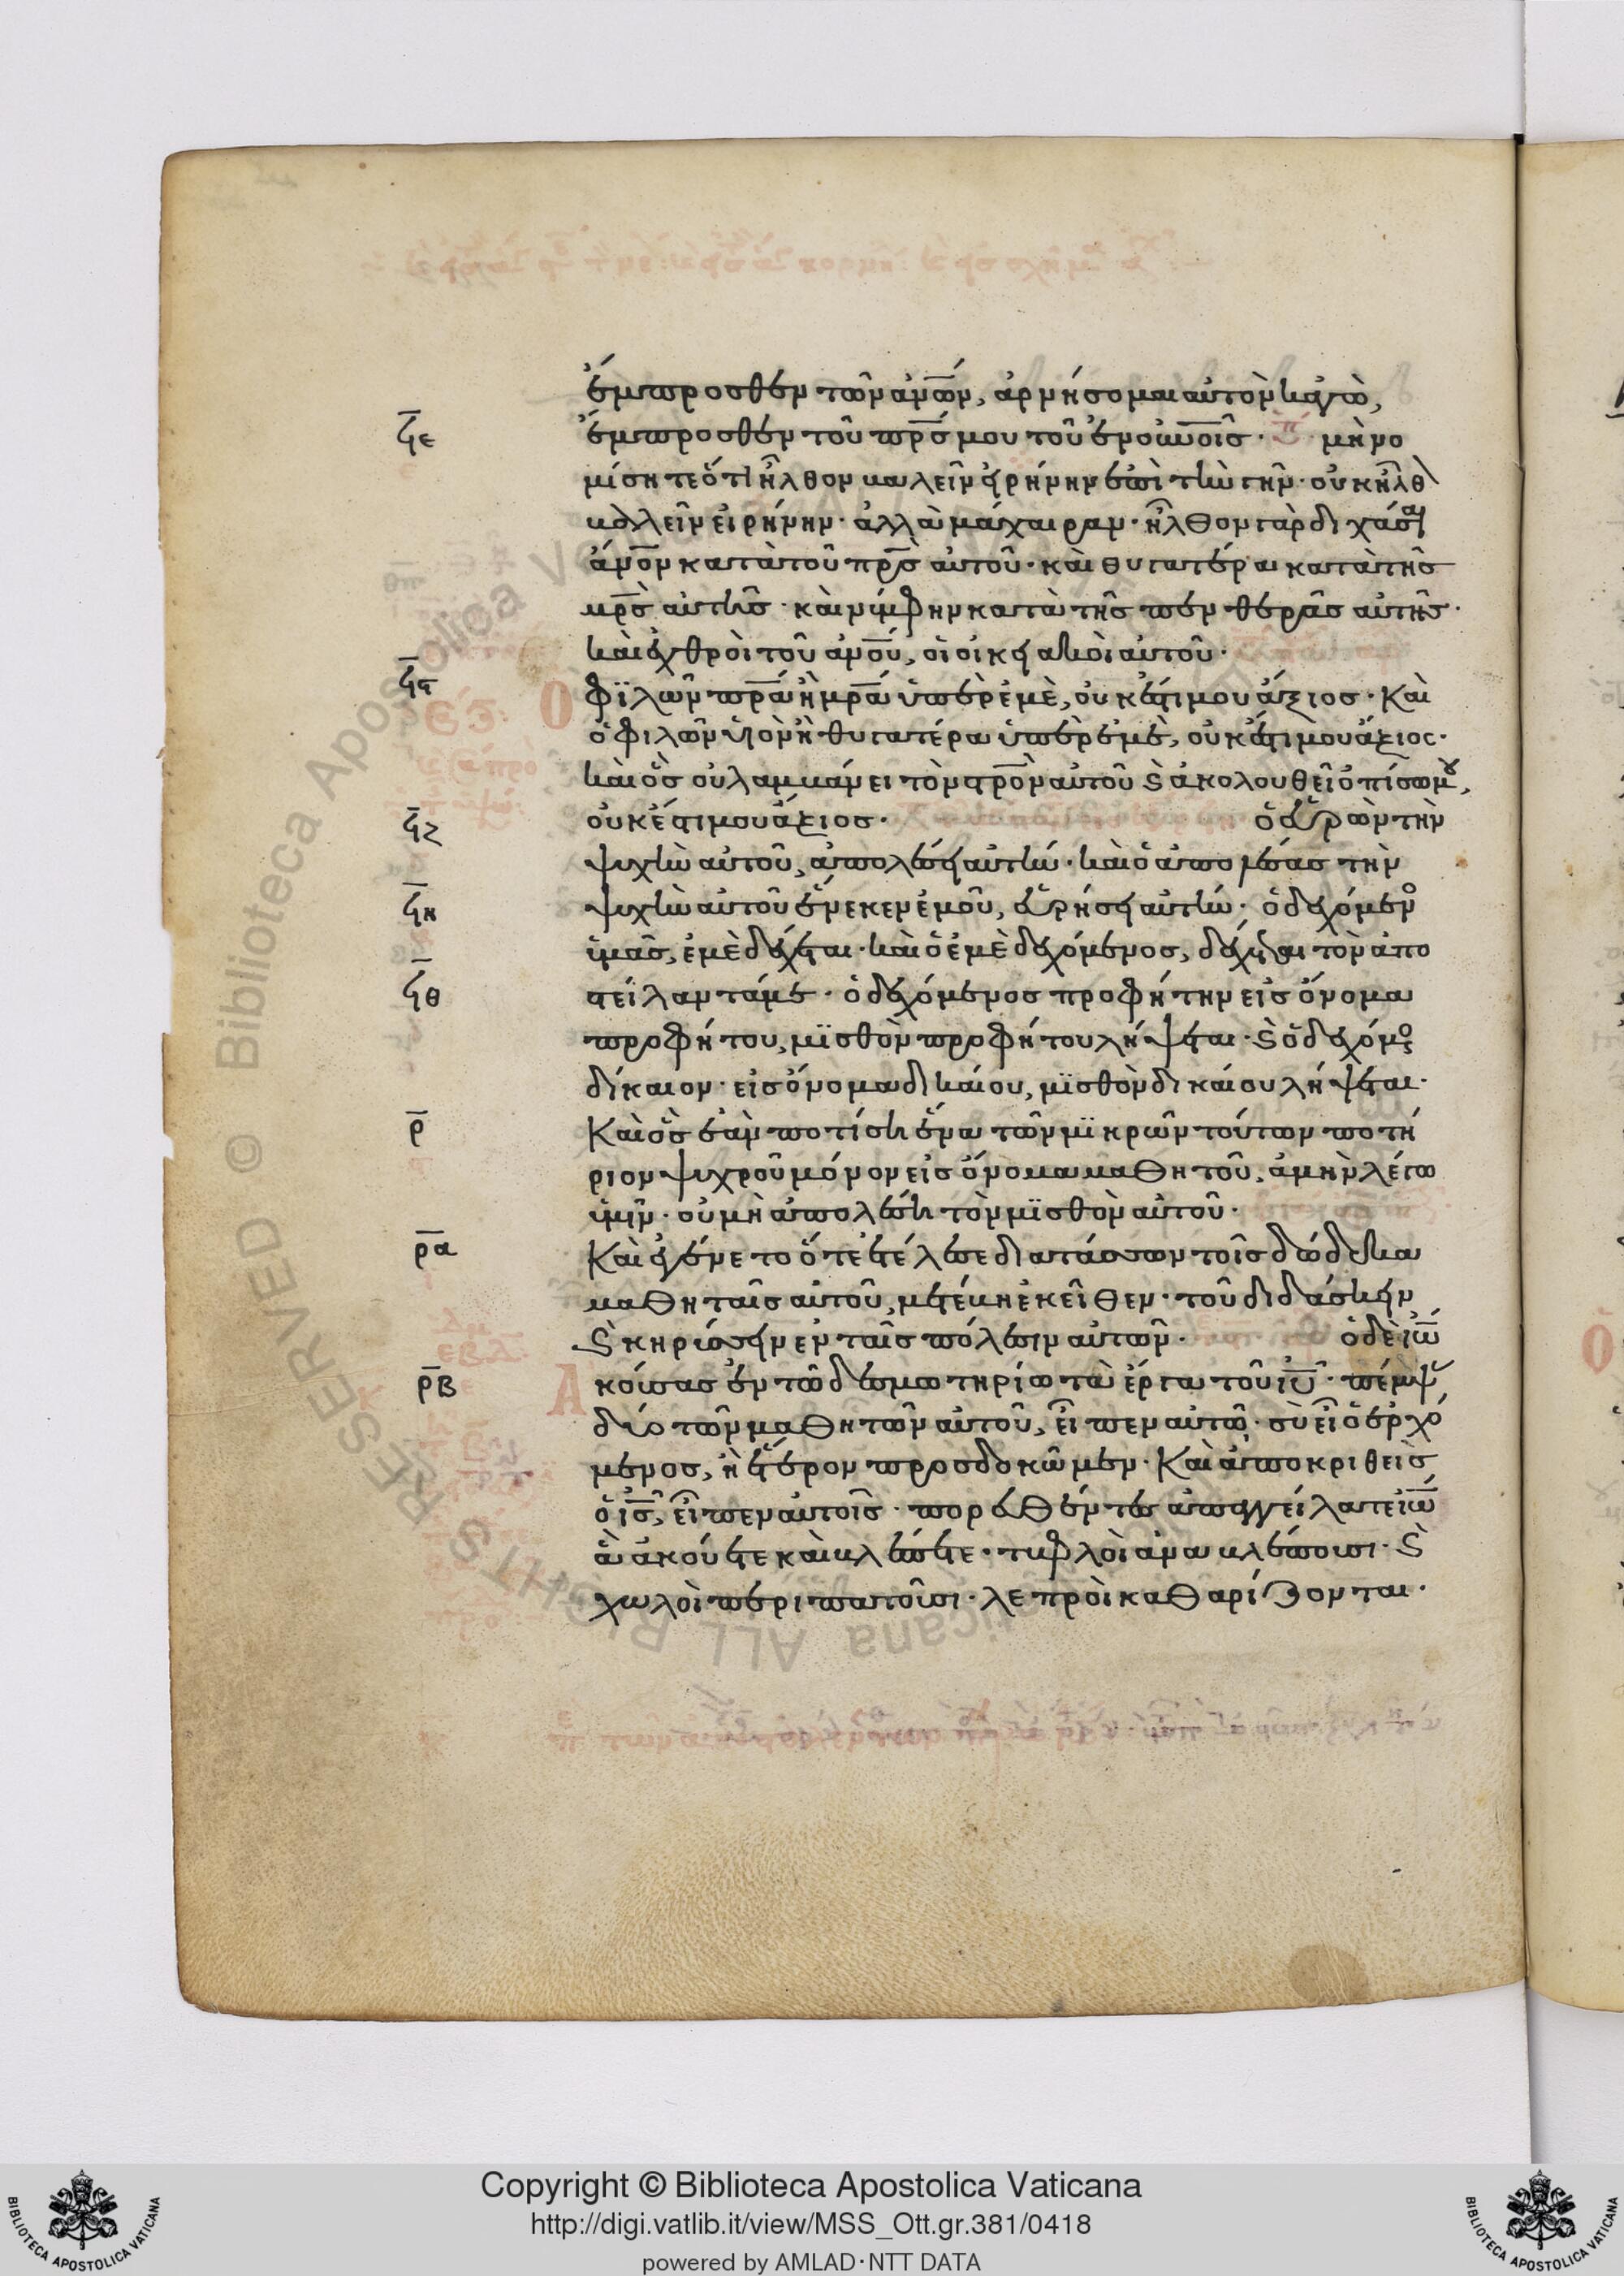 ἔμπροσθεν τῶν ἀν̅ων, ἀρνήσομαι αὐτὸν κἀγὼ,
ϟε ἔμπροσθεν τοῦ πρ̅ς μου τοῦ ἐν οὐν̅οις· μὴ νο
μίσητε ὅτι ἦλθον βαλεῖν εἰρήνην ἐπὶ τὴν γῆν· οὐκ ἦλθ
βαλεῖν εἰρήνην· ἀλλὰ μάχαιραν· ἦλθον γὰρ διχάσαι
ἄν̅ον κατὰ τοῦ πρ̅ς αὐτοῦ· καὶ θυγατέρα κατὰ τῆς
μρ̅ς αὐτῆς· καὶ νύμφην κατὰ τῆς πενθερᾶς αὐτῆς·
καὶ ἐχθροὶ τοῦ ἀν̅ου, οἱ οἰκειακοὶ αὐτοῦ·
ϟϛ Ὁ φϊλῶν πρ̅α ἢ μρ̅α ὑπὲρ ἐμὲ, οὐκ ἔστι μου ἄξιος· Καὶ
ὁ φιλῶν υἱὸν ἢ θυγατέρα ὑπὲρ ἐμὲ, οὐκ ἔστι μου ἄξιος·
καὶ ὃς οὐ λαμβάνει τὸν στρ̅ον αὐτοῦ ϗ ἀκολουθεῖ ὀπίσω μου,
ϟζ οὐκ ἔστι μου ἄξιος· ὁ εὑρὼν τὴν
ψυχὴν αὐτοῦ, ἀπολέσει αὐτήν· καὶ ὁ ἀπολέσας τὴν
ϟη ψυχὴν αὐτοῦ ἕνεκεν ἐμοῦ, εὑρήσει αὐτήν· ὁ δεχόμενο
ὑμᾶς, ἐμὲ δέχεται· καὶ ὁ ἐμὲ δεχόμενος, δέχεται τὸν ἀπο
ϟθ στείλαντά με· ὁ δεχόμενος προφήτην εἰς ὄνομα
προφήτου, μϊσθὸν προφήτου λήψεται· ϗ ὁ δεχόμος
δίκαιον· εἰς ὄνομα δικαίου, μϊσθὸν δικαίου λήψεται·
ρ Καὶ ὃς ἐὰν ποτίσῃ ἕνα τῶν μϊκρῶν τούτων ποτή
ριον ψυχροῦ μόνον εἰς ὄνομα μαθητοῦ, ἀμὴν λέγω
ὑμῖν· οὐ μὴ ἀπολέσῃ τὸν μϊσθὸν αὐτοῦ·
ρα Καὶ ἐγένετο ὅτε ἐτέλεσε διατάσσων τοῖς δώδεκα
μαθηταῖς αὐτοῦ, μετέβη ἐκεῖθεν· τοῦ διδάσκειν
ϗ κηρύσσειν ἐν ταῖς πόλεσιν αὐτῶν· ὁ δὲ ἰω̅
ρβ Ἀκούσας ἐν τῶ δεσμωτηρίω τὰ ἔργα τοῦ ἰυ̅· πέμψ
δύο τῶν μαθητῶν αὐτοῦ, εἶπεν αὐτῶ· σὺ εἶ ὁ ἐρχό
μενος, ἢ ἕτερον προσδοκῶμεν· Καὶ ἀποκριθεὶς
ὁ ις̅, εἶπεν αὐτοῖς· πορευθέντες ἀπαγγείλατε ἰω̅
ἃ ἀκούετε καὶ βλέπετε· τυφλοὶ ἀναβλέπουσι· ϗ
χωλοὶ περιπατοῦσι· λεπροὶ καθαρίζονται·
© Biblioteca Apostolica Vaticana ALL RIGHTS RESERVED
Copyright © Biblioteca Apostolica Vaticana
http://digi.vatlib.it/view/MSS_Ott.gr.381/0418
powered by AMLAD·NTT DATA
BIBLIOTECA APOSTOLICA VATICANA
BIBLIOTECA APOSTOLICA VATICANA